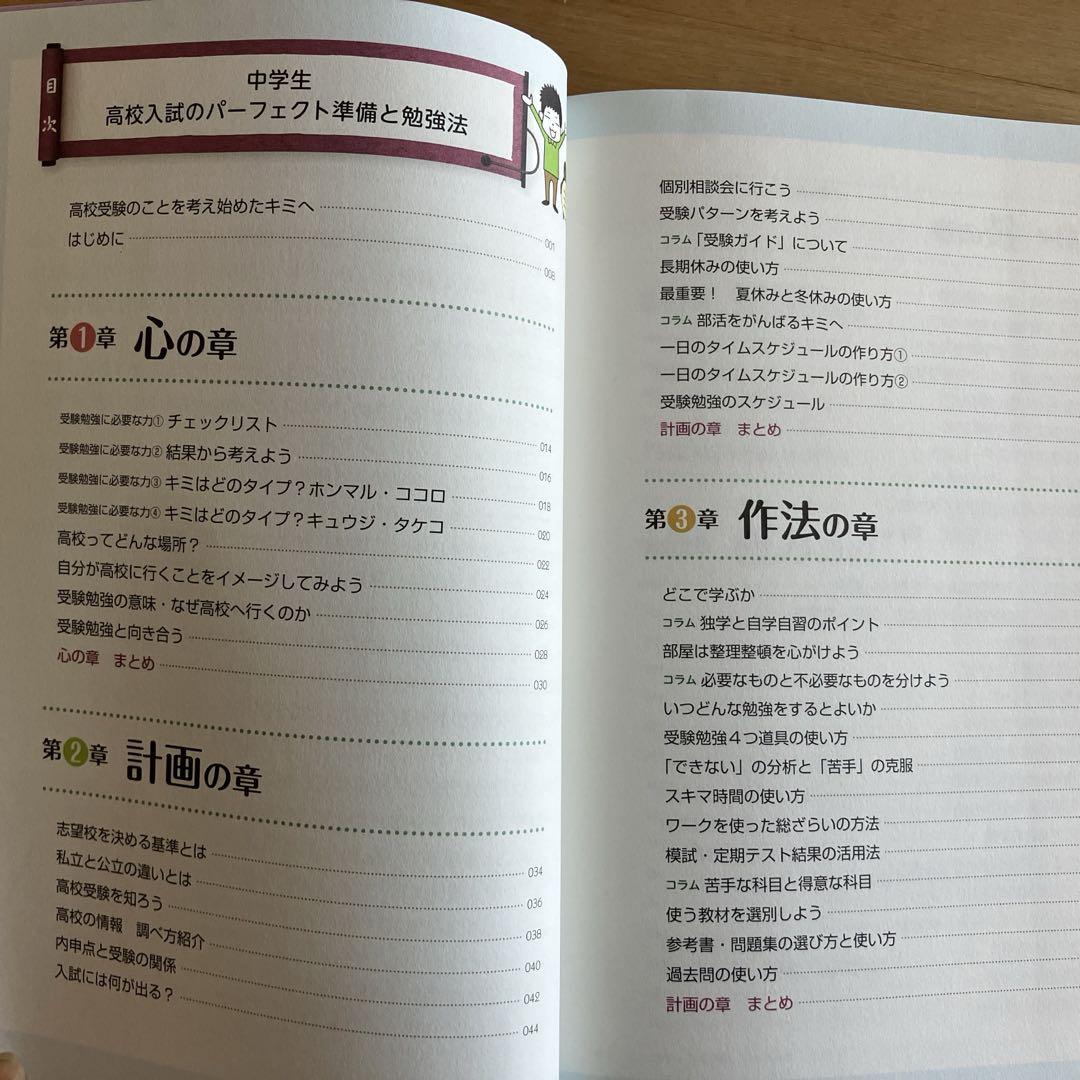 目次
中学生
高校入試のパーフェクト準備と勉強法
高校受験のことを考え始めたキミへ 001
はじめに 008
第1章 心の章
受験勉強に必要な力① チェックリスト 014
受験勉強に必要な力② 結果から考えよう 016
受験勉強に必要な力③ キミはどのタイプ？ホンマル・ココロ 018
受験勉強に必要な力④ キミはどのタイプ？キュウジ・タケコ 020
高校ってどんな場所？ 022
自分が高校に行くことをイメージしてみよう 024
受験勉強の意味・なぜ高校へ行くのか 026
受験勉強と向き合う 028
心の章　まとめ 030
第2章 計画の章
志望校を決める基準とは 034
私立と公立の違いとは 036
高校受験を知ろう 038
高校の情報　調べ方紹介 040
内申点と受験の関係 042
入試には何が出る？ 044
個別相談会に行こう
受験パターンを考えよう
コラム「受験ガイド」について
長期休みの使い方
最重要！　夏休みと冬休みの使い方
コラム 部活をがんばるキミへ
一日のタイムスケジュールの作り方①
一日のタイムスケジュールの作り方②
受験勉強のスケジュール
計画の章　まとめ
第3章 作法の章
どこで学ぶか
コラム 独学と自学自習のポイント
部屋は整理整頓を心がけよう
コラム 必要なものと不必要なものを分けよう
いつどんな勉強をするとよいか
受験勉強４つ道具の使い方
「できない」の分析と「苦手」の克服
スキマ時間の使い方
ワークを使った総ざらいの方法
模試・定期テスト結果の活用法
コラム 苦手な科目と得意な科目
使う教材を選別しよう
参考書・問題集の選び方と使い方
過去問の使い方
計画の章　まとめ